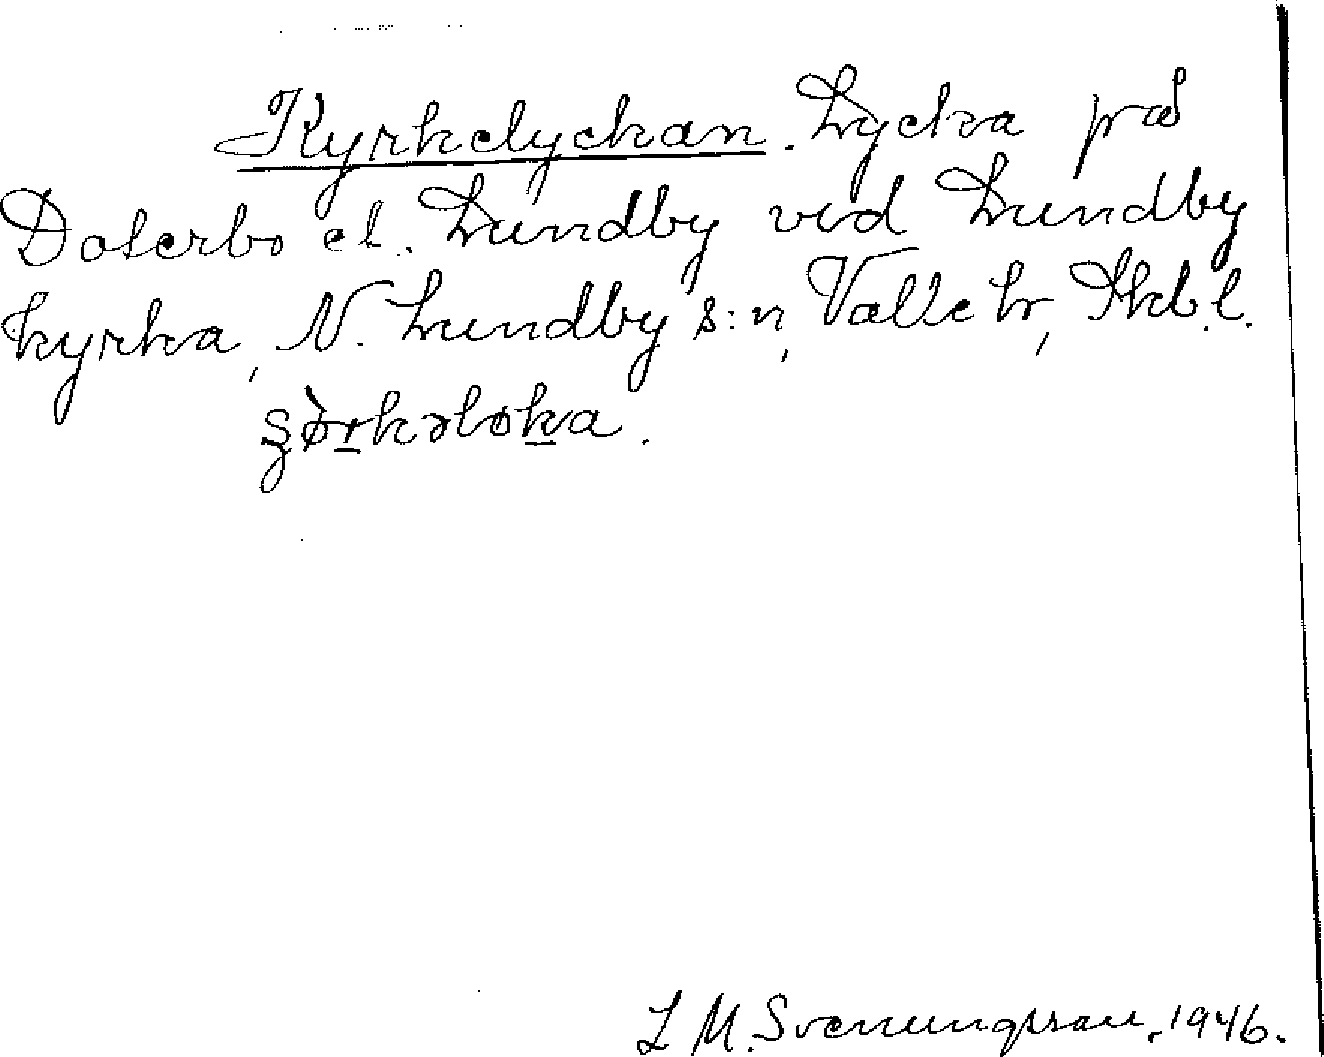 Kyrkelyckan. Lycka på
Doterbo el. Lundby vid Lundby
kyrka, N. Lundby s:n, Valle hr, Skb.l.
L M. Svenungsson, 1946.